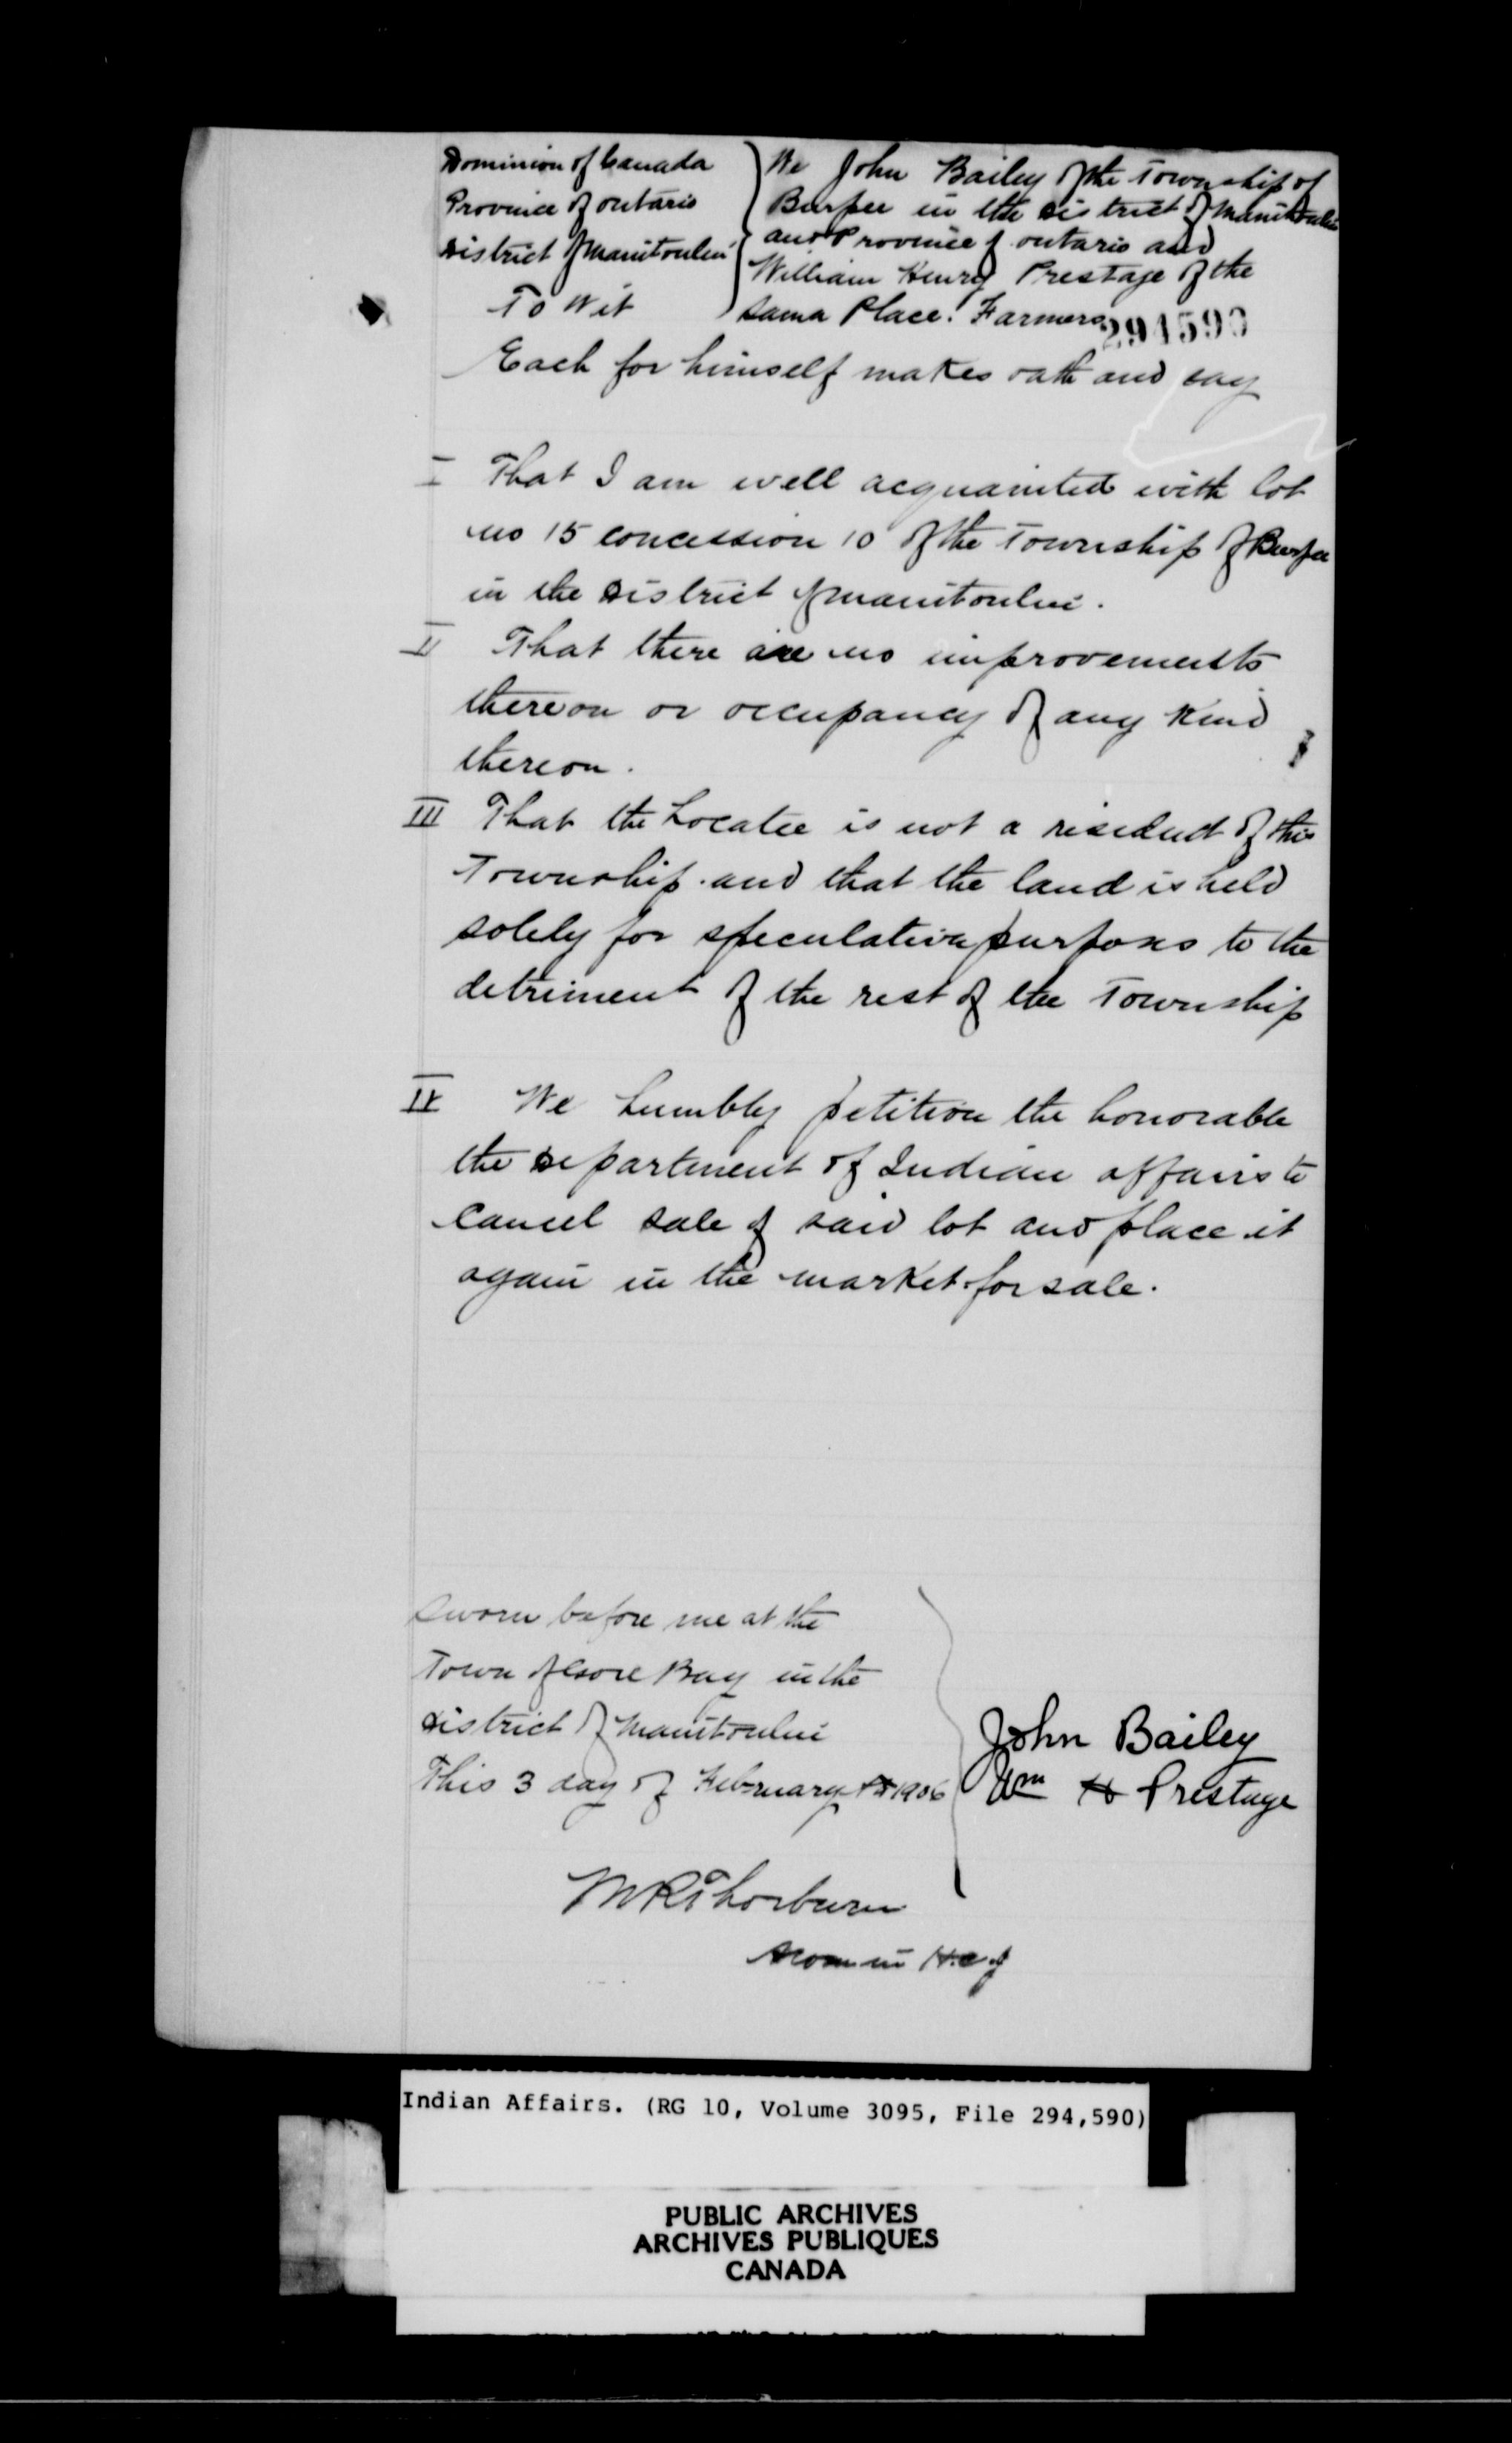 Dominion of Canada
Province of ontario
District of Manitoulin
To Wit
We John Bailey of the Township of
Burpee in the District of Manitoulin
and Province of ontario and
William Henry Prestage of the
same Place. Farmers
294590
Each for himself makes oath and say
I That I am well acquainted with lot
no 15 concession 10 of the Township of Burpee
in the District of Manitoulin.
II That there are no improvements
thereon or occupancy of any kind
thereon.
III That the Locatee is not a resident of this
Township. and that the land is held
solely for speculative purposes to the
detriment of the rest of the Township
IV We humbly petition the honorable
the Department of Indian affairs to
cancel sale of said lot and place it
again in the market for sale.
Sworn before me at the
Town of Gore Bay in the
District of Manitoulin
This 3 day of February AD 1906
John Bailey
Wm H Prestage
M R Thorburn
in H.C.J
Indian Affairs. (RG 10, Volume 3095, File 294,590)
PUBLIC ARCHIVES
ARCHIVES PUBLIQUES
CANADA